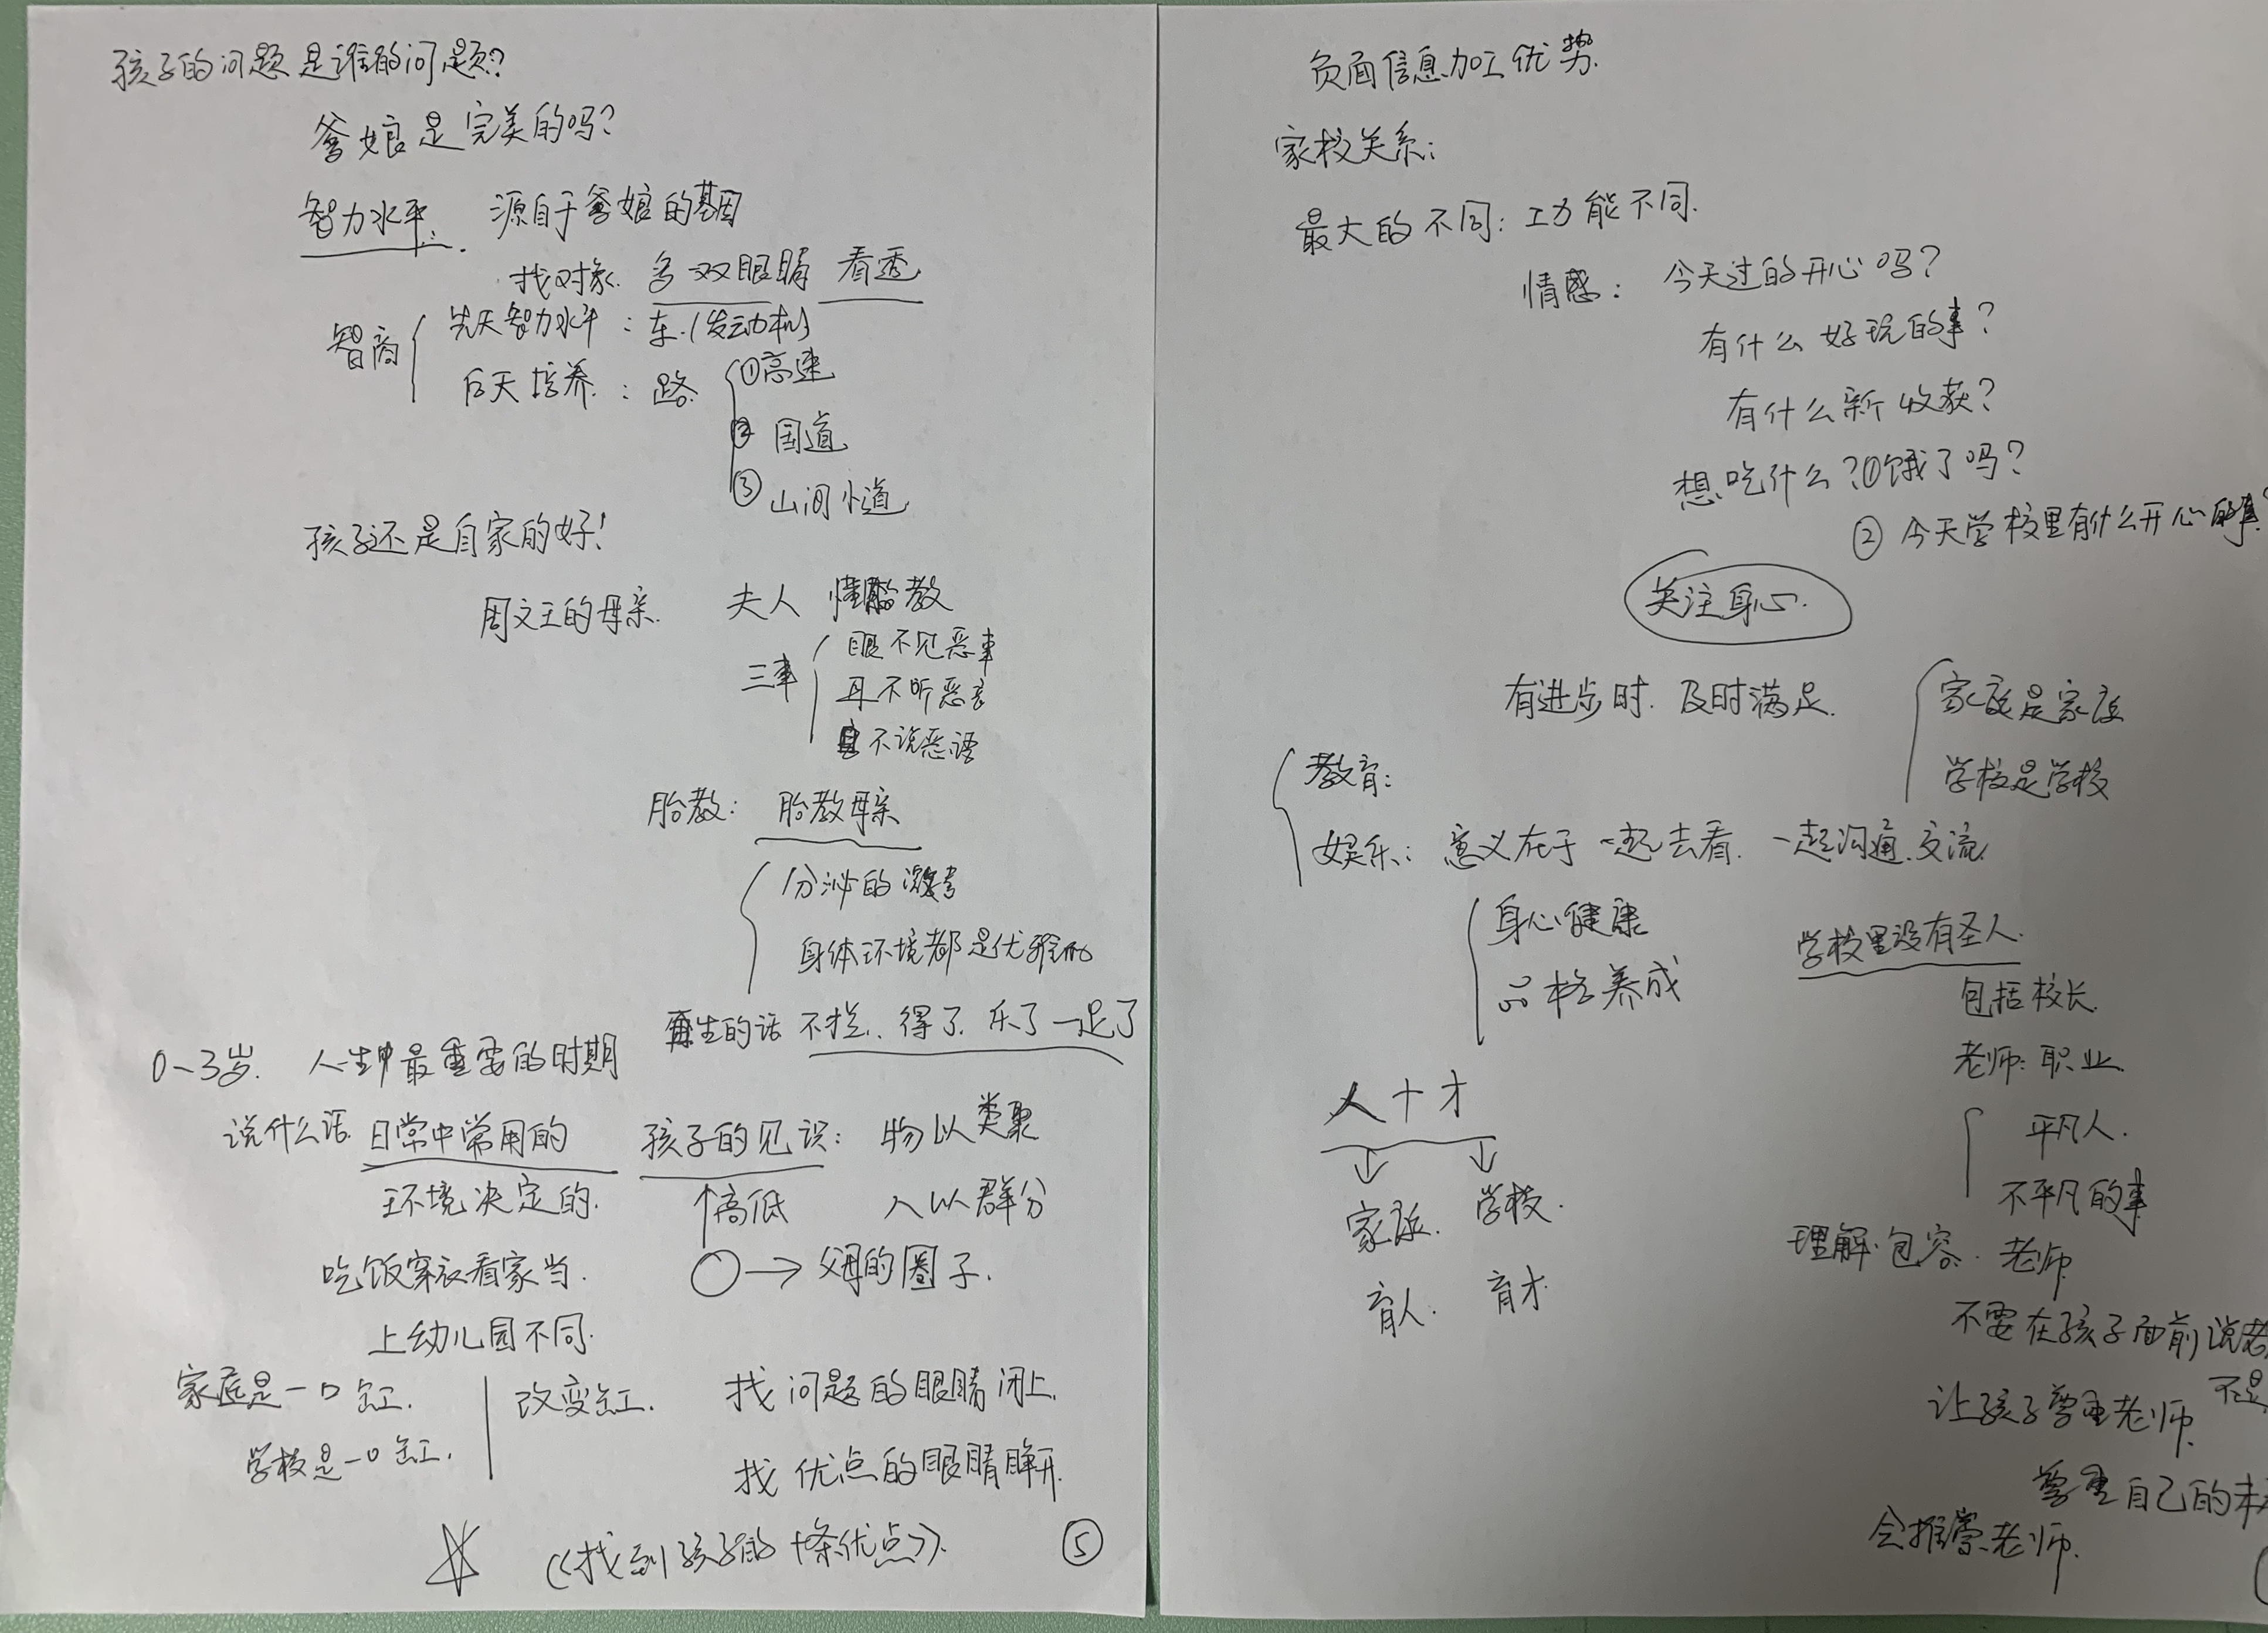 孩子的问题是谁的问题?
爹娘是完美的吗?
智力水平: 源自于爹娘的基因
找对象. 多双眼睛 看透
智商 先天智力水平: 车.(发动机)
后天培养.: 路 ①高速
② 国道
③ 山间小道
孩子还是自家的好!
周文王的母亲. 夫人 懂胎教
三事 眼不见恶事
耳不听恶言
不说恶语
胎教: 胎教母亲
分泌的激素
身体环境都是优雅的
再生的话 不拦. 得了. 乐了一足了
0-3岁. 人生中最重要的时期
说什么话. 日常中常用的
环境决定的.
孩子的见识: 物以类聚
↑高低 人以群分
○→父母的圈子.
吃饭穿衣看家当.
上幼儿园不同.
家庭是一口缸.
学校是一口缸.
改变缸.
找问题的眼睛闭上.
找优点的眼睛睁开.
☆ 《找到孩子的十条优点》. ⑤
负面信息加工优势.
家校关系:
最大的不同: 功能不同.
情感: 今天过的开心吗?
有什么好玩的事?
有什么新收获?
想吃什么?①饿了吗?
② 今天学校里有什么开心的事?
关注身心.
有进步时. 及时满足.
家庭是家庭
学校是学校
教育:
娱乐: 意义在于一起去看. 一起沟通.交流
身心健康
品格养成
学校里没有圣人.
包括校长.
老师: 职业.
平凡人.
不平凡的事
理解.包容. 老师
人+才
↓ ↓
家庭. 学校.
育人. 育才
不要在孩子面前说老
不是
让孩子尊重老师.
尊重自己的
会推崇老师.